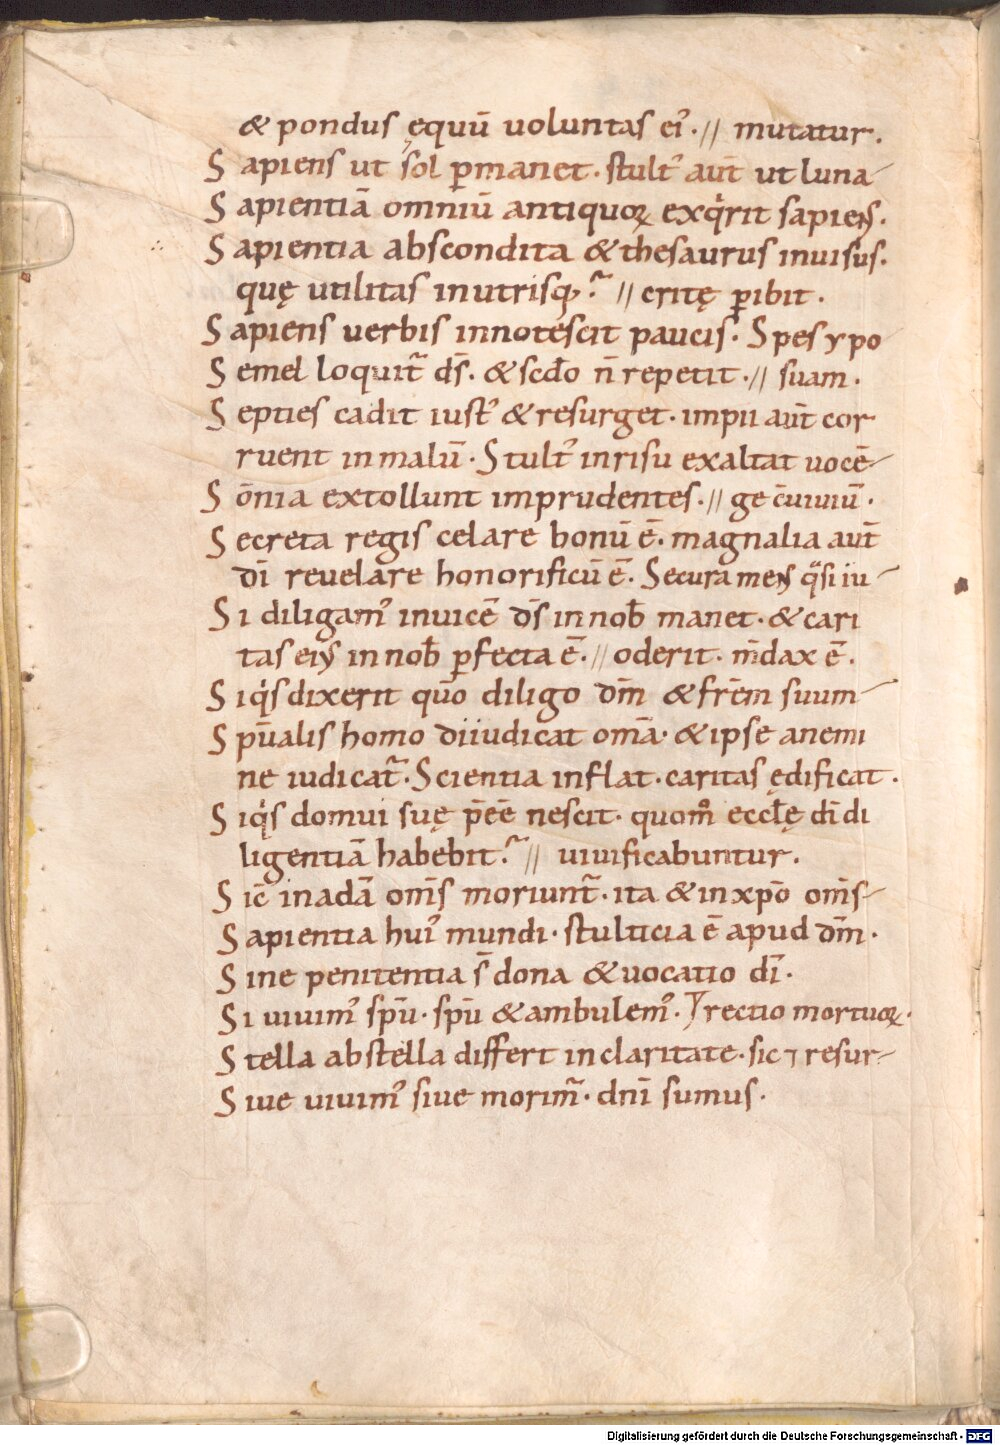 & pondus ęquū uoluntas ei᾽·// mutatur.
Sapiens ut sol ꝑmanet· stult᾽ aut̄ ut luna
Sapientiā omniū antiquoꝝ exqͥrit sapiens.
Sapientia abscondita & thesaurus inuisus.
quę utilitas inutrisq;? // critę ꝑibit.
Sapiens uerbis innotescit paucis. Spes ypo
Semel loquit᷑ ds̄. & scd̄o n̄ repetit.// suam.
Septies cadit iust᾽ & resurget. impii aut̄ cor
ruent inmalū. Stult᾽ inrisu exaltat uocē
S on̄ia extollunt imprudentes.// ge c̄uiuiū.
Secreta regis celare bonū ē. magnalia aut̄
dī reuelare honorificū ē. Secura mens qͣsi iu
Si diligam᾽ inuicē ds̄ innob̄ manet. & cari
tas ei᾽ innob̄ ꝑfecta ē.// oderit. m̄dax ē.
Siqͥs dixerit qūo diligo dm̄ & fr̄em suum
Spūalis homo diiudicat om̄a. & ipse anemi
ne iudicat᷑. Scientia inflat. caritas ędificat.
Siqͥs domui suę p̄eē nescit. quom̊ eccl̄ę dī di
ligentiā habebit? // uiuificabuntur.
Sic̄ inadā om̄s moriunt᷑. ita & inxp̄o om̄s
Sapientia hui᾽ mundi. stulticia ē apud dm̄.
Sine penitentia s̄ dona & uocatio dī.
Si uiuim᾽ spū. spū & ambulem᾽. rectio mortuoꝝ.
Stella abstella differt inclaritate. sic ⁊ resur
Siue uiuim᾽ siue morim᷑. dnī sumus.
Digitalisierung gefördert durch die Deutsche Forschungsgemeinschaft - DFG